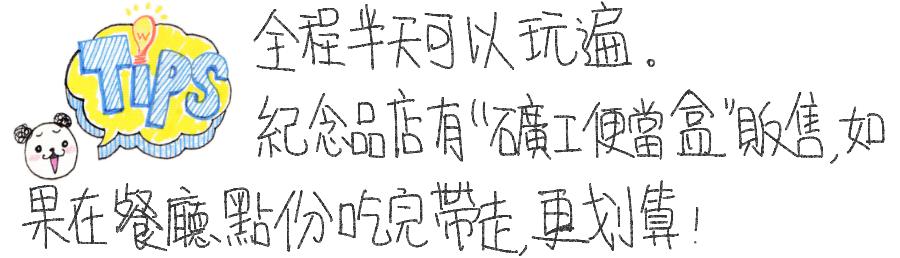 TIPS
全程半天可以玩遍。
紀念品店有“礦工便當盒”販售,如
果在餐廳點份吃完帶走,更划算!